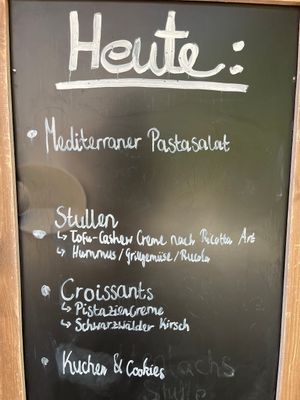 Heute:
Mediterraner Pastasalat
Stullen
↳ Tofu-Cashew Creme nach Ricotta Art
↳ Hummus/Grillgemüse/Rucola
Croissants
↳ Pistaziencreme
↳ Schwarzwälder Kirsch
Kuchen & Cookies